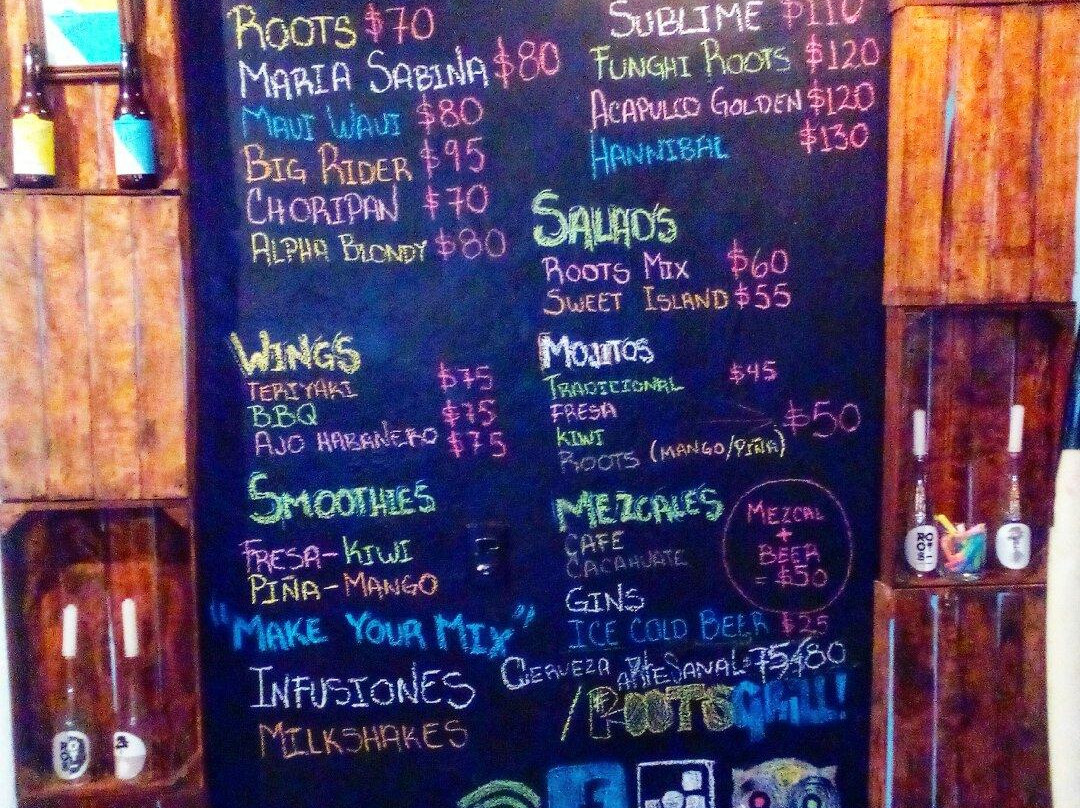 ROOTS $70
MARIA SABINA $80
MAUI WAUI $80
BIG RIDER $95
CHORIPAN $70
ALPHA BLONDY $80
WINGS
TERIYAKI $75
BBQ $75
AJO HABANERO $75
SMOOTHIES
FRESA-KIWI
PIÑA-MANGO
"MAKE YOUR MIX"
INFUSIONES
MILKSHAKES
SUBLIME $110
FUNGHI ROOTS $120
ACAPULCO GOLDEN $120
HANNIBAL $130
SALAD'S
ROOTS MIX $60
SWEET ISLAND $55
MOJITOS
TRADICIONAL $45
FRESA
KIWI $50
ROOTS (MANGO/PIÑA)
MEZCALES
CAFE
CACAHUATE
MEZCAL
+
BEER
= $50
GINS
ICE COLD BEER $25
CERVEZA ARTESANAL 75/80
/ROOTSGRILL!